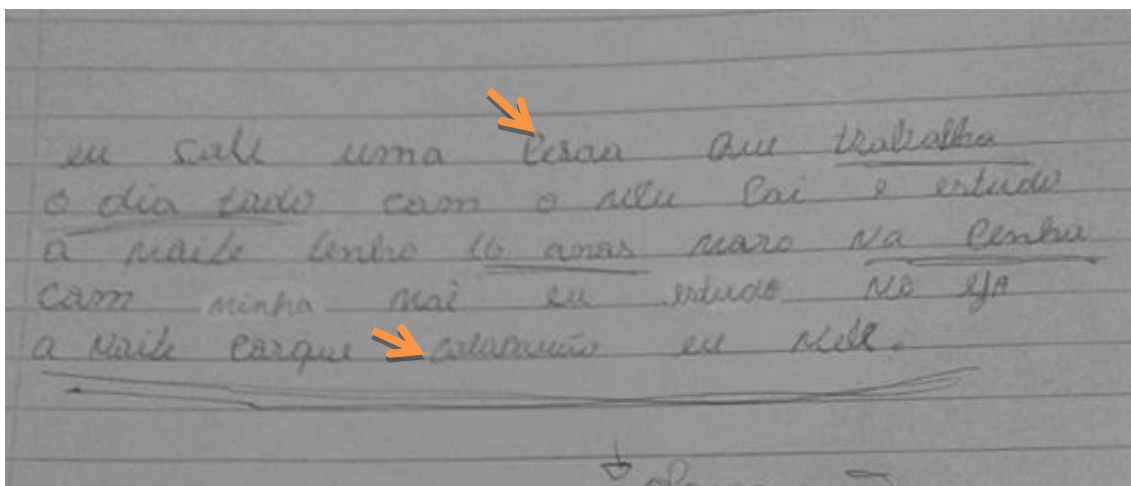 eu sale uma Pesaa que trabalha
o dia tado cam o meu Pai e estudo
a naite tenho 16 anas maro na Penha
cam minha mai eu estudo no eja
a naite Parque